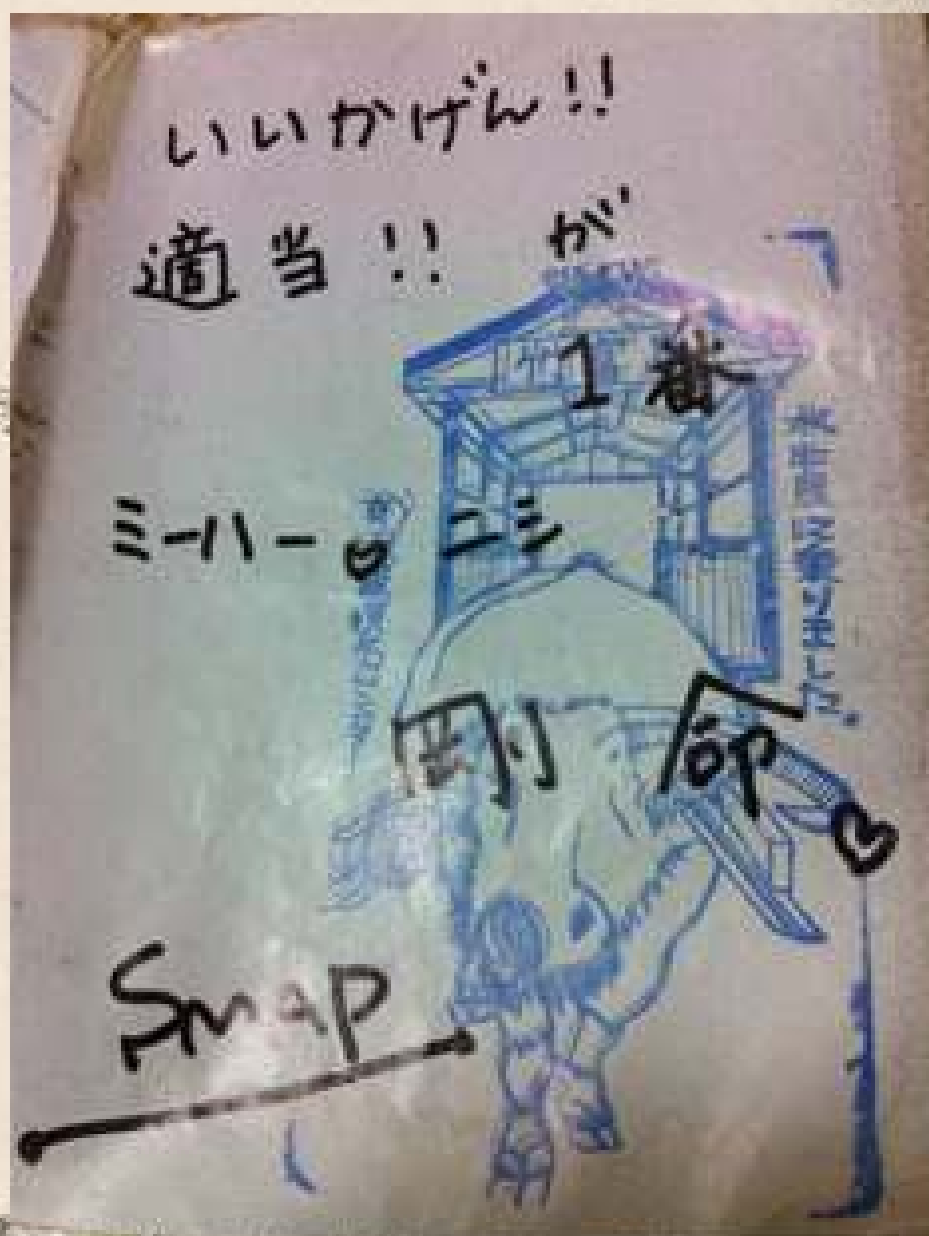 いいかげん!!
適当!! が
1番
ミーハー♡ニシ
剛 命♡
SMAP
水牛車に乗りました。